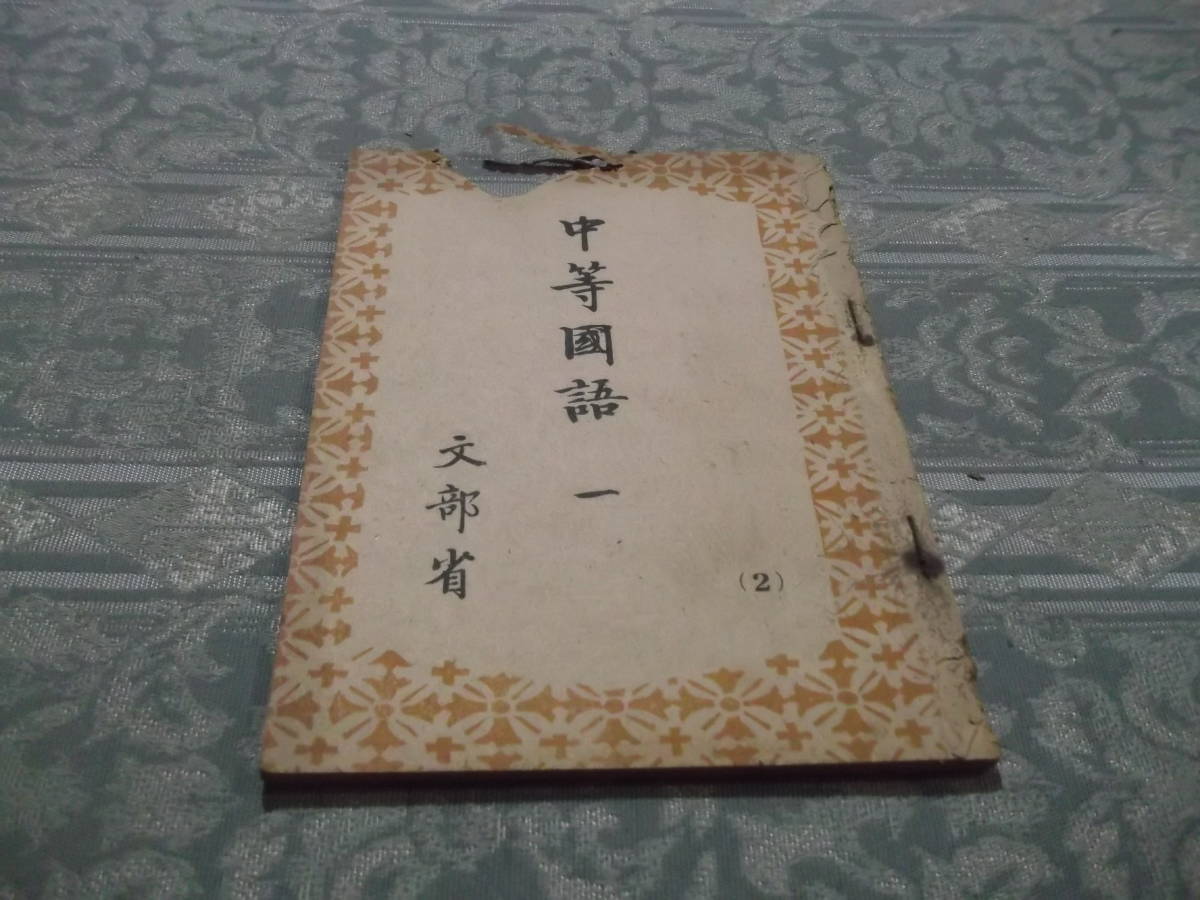 中等國語 一
(2)
文部省